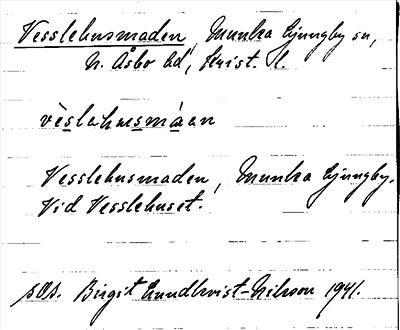 Vesslehusmaden, Munka Ljungby sn,
N. Åsbo hd, Krist. l.
vèslahusmáan
Vesslehusmaden, Munka Ljungby.
Vid Vesslehuset.
SOS. Birgit Lundkvist-Nilsson 1941.